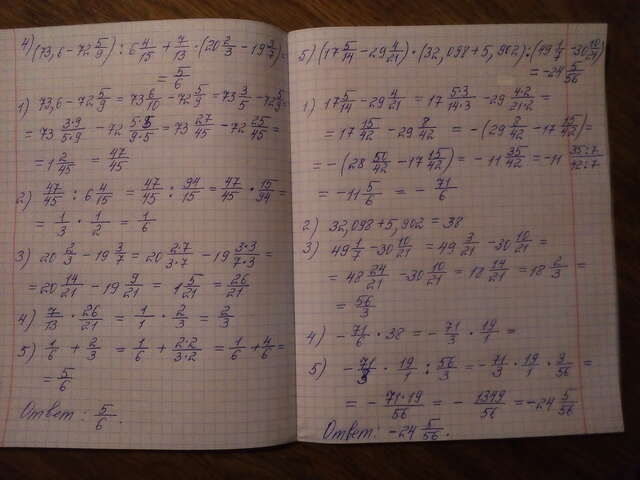 4) (73,6 - 72 5/9) : 6 4/15 + 7/13 · (20 2/3 - 19 3/7) =
= 5/6
1) 73,6 - 72 5/9 = 73 6/10 - 72 5/9 = 73 3/5 - 72 5/9 =
= 73 3·9/5·9 - 72 5·5/9·5 = 73 27/45 - 72 25/45 =
= 1 2/45 = 47/45
2) 47/45 : 6 4/15 = 47/45 : 94/15 = 47/45 · 15/94 =
= 1/3 · 1/2 = 1/6
3) 20 2/3 - 19 3/7 = 20 2·7/3·7 - 19 3·3/7·3 =
= 20 14/21 - 19 9/21 = 1 5/21 = 26/21
4) 7/13 · 26/21 = 1/1 · 2/3 = 2/3
5) 1/6 + 2/3 = 1/6 + 2·2/3·2 = 1/6 + 4/6 =
= 5/6
Ответ: 5/6.
5) (17 5/14 - 29 4/21) · (32,098 + 5,902) : (49 1/7 - 30 10/21)
= -24 5/56
1) 17 5/14 - 29 4/21 = 17 5·3/14·3 - 29 4·2/21·2 =
= 17 15/42 - 29 8/42 = -(29 8/42 - 17 15/42) =
= -(28 50/42 - 17 15/42) = -11 35/42 = -11 35:7/42:7
= -11 5/6 = - 71/6
2) 32,098 + 5,902 = 38
3) 49 1/7 - 30 10/21 = 49 3/21 - 30 10/21 =
= 48 24/21 - 30 10/21 = 18 14/21 = 18 2/3 =
= 56/3
4) - 71/6 · 38 = - 71/3 · 19/1 =
5) - 71/3 · 19/1 : 56/3 = - 71/3 · 19/1 · 3/56 =
= - 71·19/56 = - 1349/56 = -24 5/56
Ответ: -24 5/56.